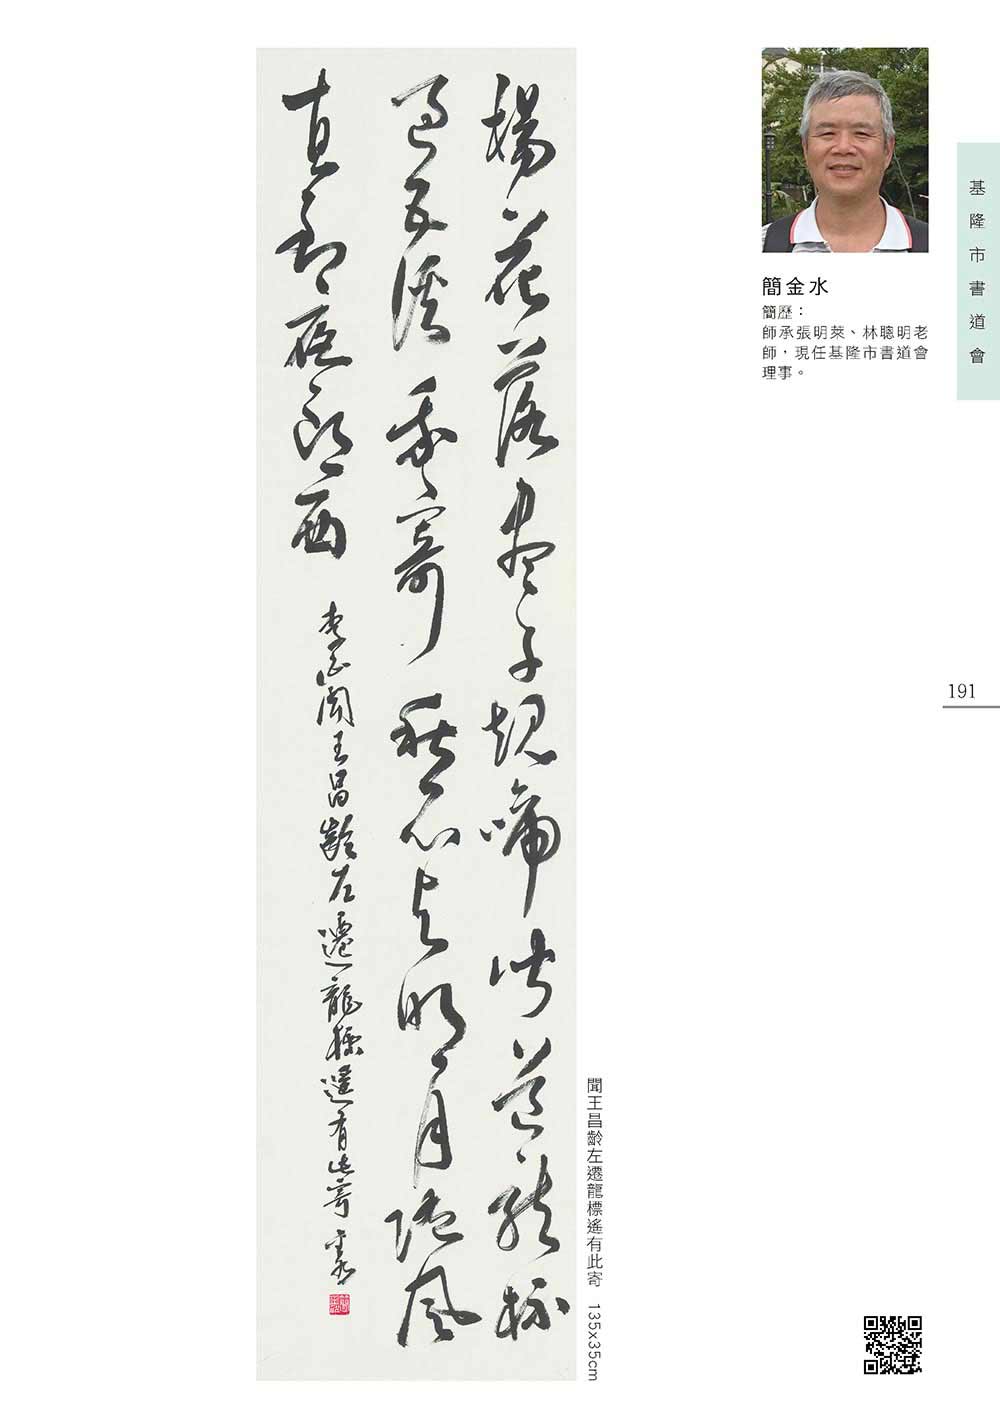 楊花落盡子規啼聞道龍標
過五溪我寄愁心與明月隨風
直到夜郎西
李白聞王昌齡左遷龍標遙有此寄 金水
聞王昌齡左遷龍標遙有此寄 135x35cm
簡金水
簡歷：
師承張明萊、林聰明老
師，現任基隆市書道會
理事。
基隆市書道會
191